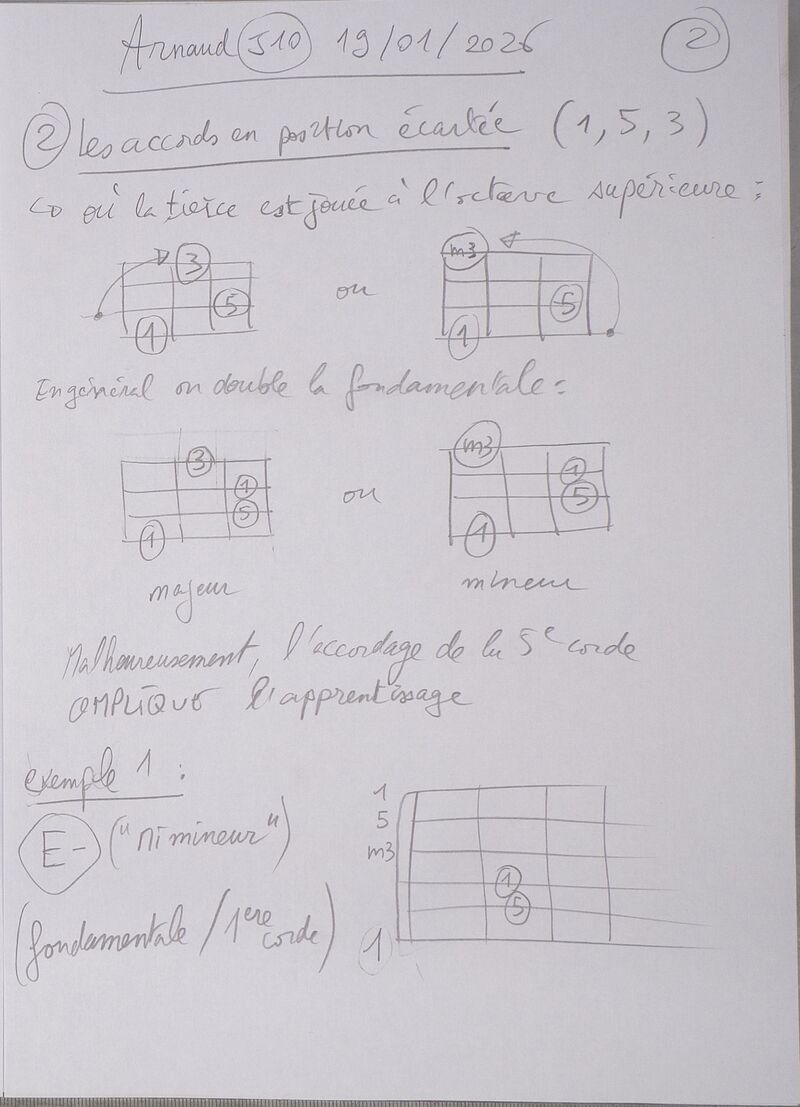 Arnaud J10 19/01/2026 2
2 Les accords en position écartée (1, 5, 3)
↳ où la tierce est jouée à l'octave supérieure :
3 m3
5 ou 5
1 1
En général on double la fondamentale :
3 m3
1 ou 1
5 5
1 1
majeur mineur
Malheureusement, l'accordage de la 5e corde
COMPLIQUE l'apprentissage
exemple 1 :
E- ("mi mineur")
(fondamentale / 1ere corde)
1
5
m3
1
5
1